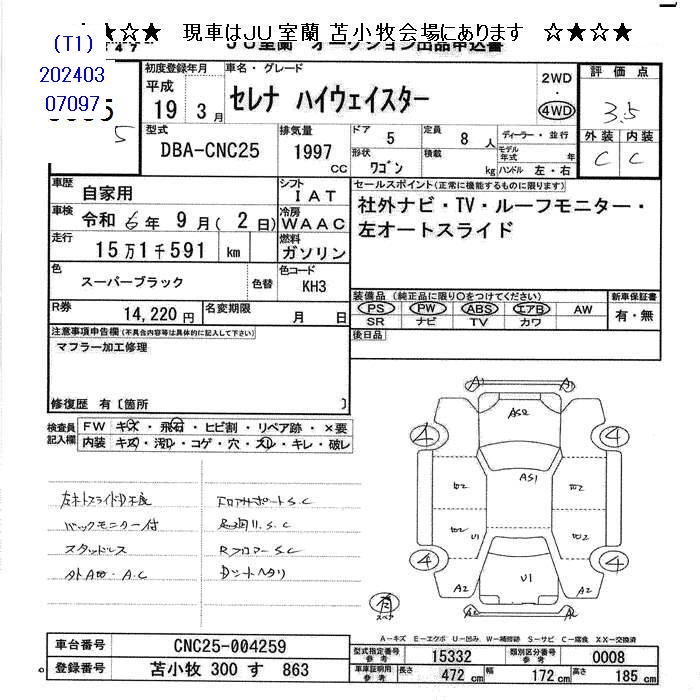 ★☆★ 現車はJU室蘭 苫小牧会場にあります ☆★☆★
JU室蘭 オークション出品申込書
(T1)
202403
07097
5
初度登録年月
平成
19 3月
車名・グレード
セレナ ハイウェイスター
2WD
・
4WD
評価点
3.5
外装 内装
C C
型式
DBA-CNC25
排気量
1997 CC
ドア 5
定員 8 人
形状 ワゴン
積載 kg
ディーラー・並行
モデル年式 年
ハンドル 左・右
車歴 自家用
シフト IAT
車検 令和 6年 9月( 2日)
冷房 WAAC
走行 15万1千591 km
燃料 ガソリン
色 スーパーブラック 色替
色コード KH3
R券 14,220円
名変期限 月 日
セールスポイント(正常に機能するものに限ります)
社外ナビ・TV・ルーフモニター・
左オートスライド
装備品 (純正品に限り○をつけてください)
PS PW ABS エアB AW
SR ナビ TV カワ
新車保証書
有・無
後日品
注意事項申告欄(不具合内容等は具体的に記入して下さい)
マフラー加工修理
修復歴 有〔箇所 〕
検査員記入欄
FW キズ・飛石・ヒビ割・リペア跡・×要
内装 キズ・汚れ・コゲ・穴・スレ・キレ・破レ
左オートスライド不良
バックモニター付
スタッドレス
フロアサポートS.C
足廻りS.C
RフロアーS.C
Dシートヘタリ
A1
A1
AS2
4
4
AS1
U1
U1
A2
A2
4
4
A2
A2
有
スペア
A-キズ E-エクボ U-凹み W-補修跡 S-サビ C-腐食 XX-交換済
車台番号 CNC25-004259
登録番号 苫小牧 300 す 863
型式指定番号 参考 15332
類別区分番号 参考 0008
車庫証明用 参考 長さ 472 cm 幅 172 cm 高さ 185 cm